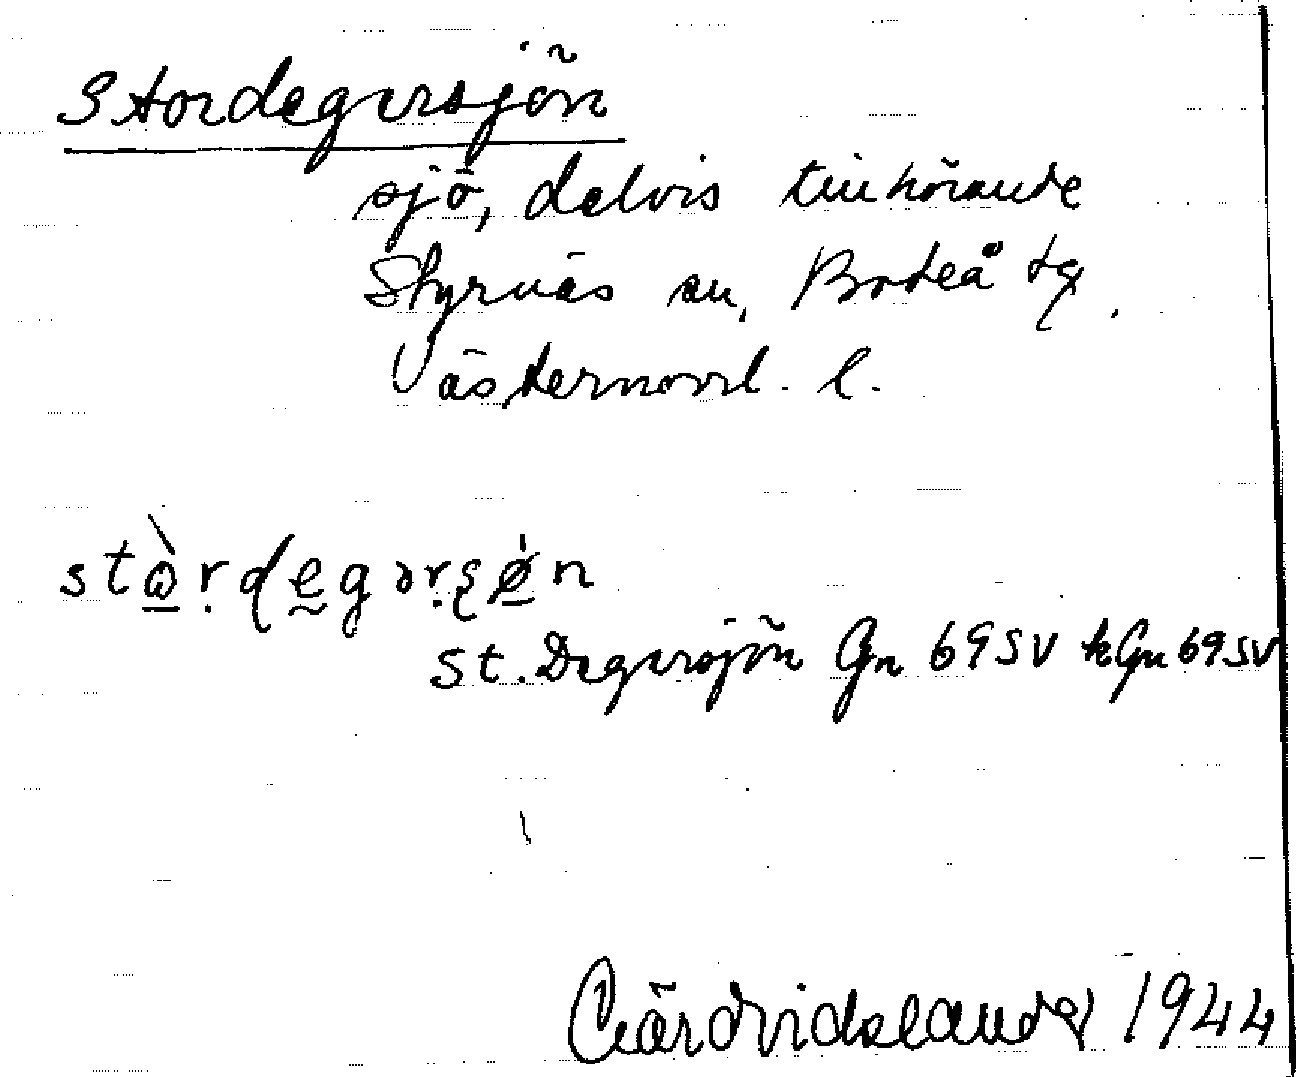 Stordegersjön
sjö, delvis tillhörande
Styrnäs sn, Boteå tg.
Västernorrl. l.
stò̱ṛdegərşǿ̱n
St. Degersjön Gn 69 SV kGn 69 SV
1944